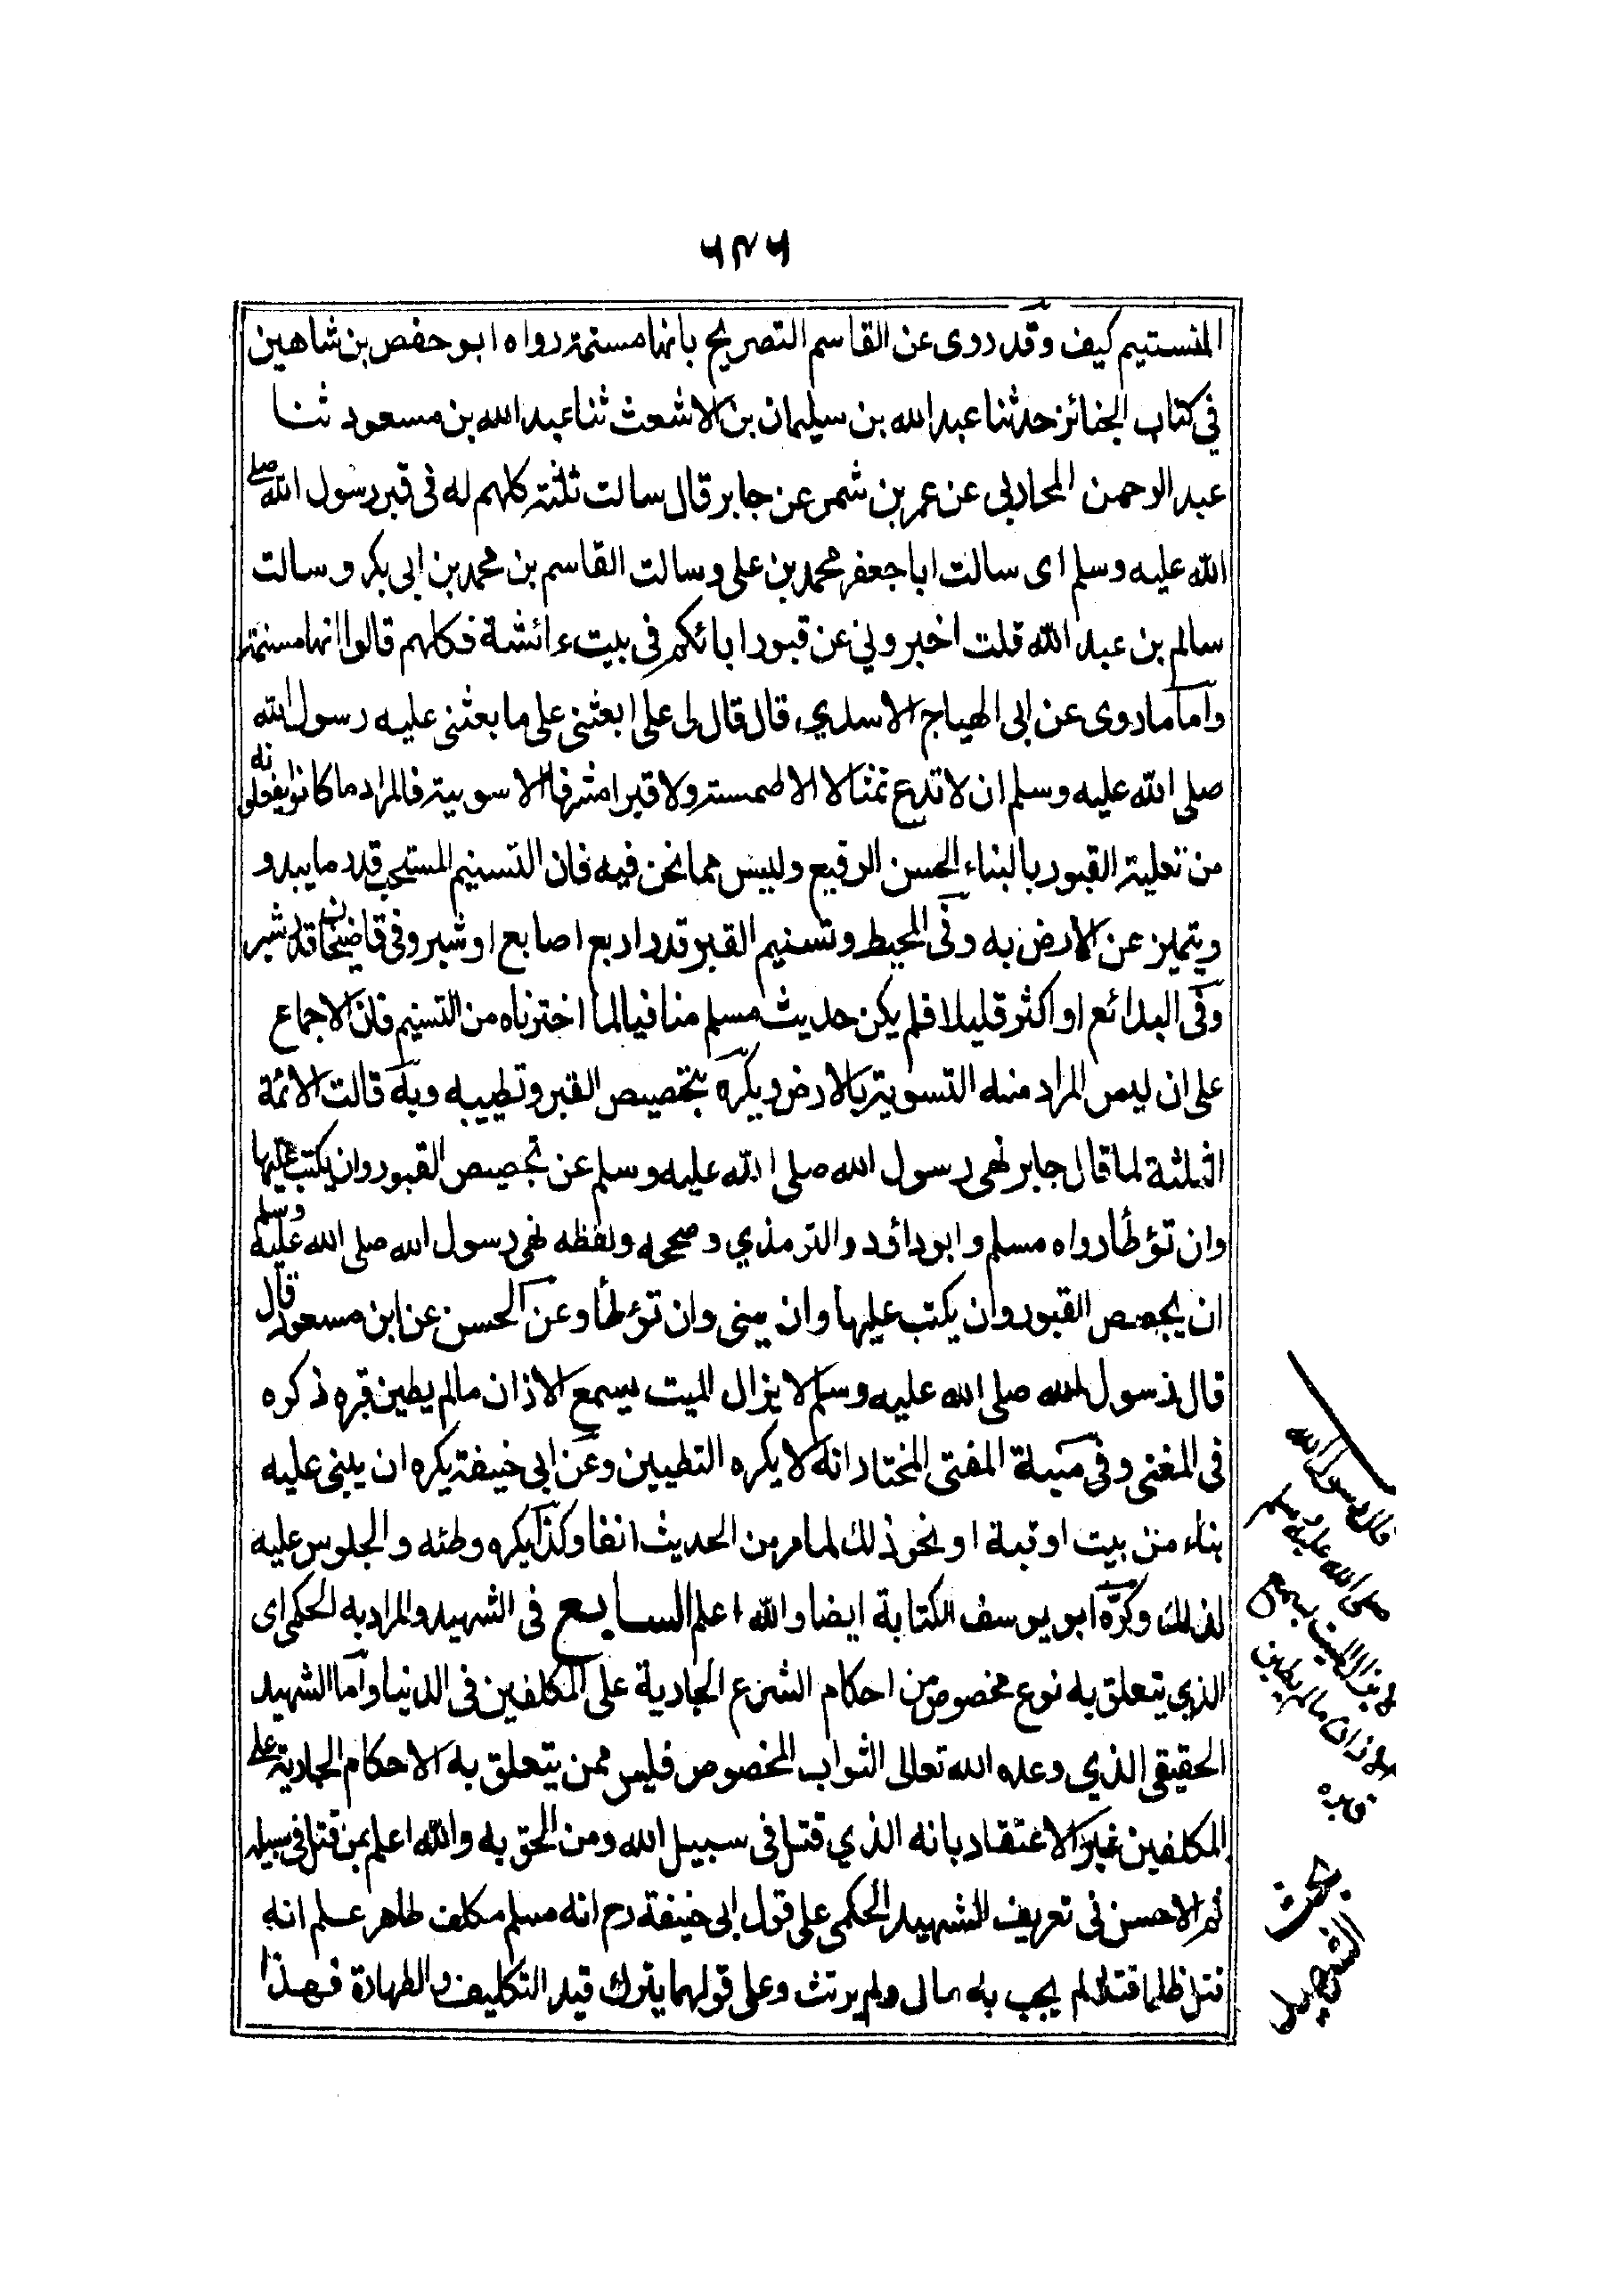 ٦٤٦
المنستيم كيف وقد روى عن القاسم التصريح بانها مسنمة رواه ابو حفص بن شاهين
في كتاب الجنائز حدثنا عبد الله بن سليمان بن الاشعث ثنا عبد الله بن مسعود ثنا
عبد الرحمن المحاربي عن عمر بن شمر عن جابر قال سالت ثلثة كلهم له في قبر رسول الله صلى
الله عليه وسلم اى سالت ابا جعفر محمد بن على وسالت القاسم بن محمد بن ابى بكر وسالت
سالم بن عبد الله قلت اخبرونى عن قبور ابائكم في بيت عائشة فكلهم قالوا انها مسنمة
واما ما روى عن ابى الهياج الاسدي قال قال لى على ابعثنى على ما بعثنى عليه رسول الله
صلى الله عليه وسلم ان لا تدع تمثالا الا طمسته ولا قبرا مشرفا الا سويته فالمراد ما كانوا يفعلونه
من تعلية القبور بالبناء الحسن الرفيع وليس مما نحن فيه فان التسنيم المستحب قدر ما يبدو
ويتميز عن الارض به وفى المحيط وتسنيم القبر قدر اربع اصابع او شبر وفى قاضيخان قدر شبر
وفى البدائع او اكثر قليلا فلم يكن حديث مسلم منافيا لما اخترناه من التسنيم فان الاجماع
على ان ليس المراد منه التسوية بالارض ويكره تجصيص القبر وتطيبه وبه قالت الائمة
الثلثة لما قال جابر نهى رسول الله صلى الله عليه وسلم عن تجصيص القبور وان يكتب عليها
وان تؤطأ رواه مسلم وابو دائود والترمذي وصححه ولفظه نهى رسول الله صلى الله عليه وسلم
ان يجصص القبور وان يكتب عليها وان يبنى وان تؤطأ وعن الحسن عن ابن مسعود قال
قال رسول الله صلى الله عليه وسلم لا يزال الميت يسمع الاذان مالم يطين قبره ذكره
فى المغنى وفى منية المفتى المختار انه لا يكره التطيين وعن ابى حنيفة يكره ان يبنى عليه
بناء من بيت او قبة او نحو ذلك لما مر من الحديث انفا وكذا يكره وطئه والجلوس عليه
لذلك وكره ابو يوسف الكتابة ايضا والله اعلم السابع فى الشهيد والمراد به الحكمى اى
الذي يتعلق به نوع مخصوص من احكام الشرع الجارية على المكلفين فى الدنيا واما الشهيد
الحقيقى الذي وعده الله تعالى الثواب المخصوص فليس ممن يتعلق به الاحكام الجارية على
المكلفين غير الاعتقاد بانه الذي قتل فى سبيل الله ومن الحق به والله اعلم بمن قتل فى سبيله
ثم الاحسن فى تعريف الشهيد الحكمى على قول ابى حنيفة رح انه مسلم مكلف طاهر علم انه
قتل ظلما قتلا لم يجب به مال ولم يرتث وعلى قولهما يترك قيد التكليف والطهارة فهذا
قال رسول الله
صلى الله عليه وسلم
لا يزال الميت يسمع
الاذان مالم يطين
قبره
بحث
الشهيد